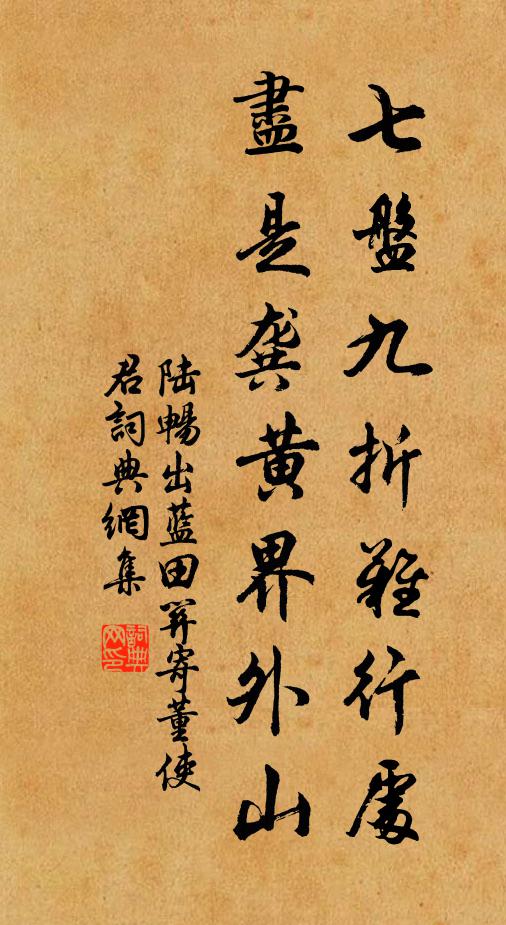 七盤九折難行處
盡是龔黃界外山
陸暢出藍田關寄董使
君詞典網集
詞典
网印